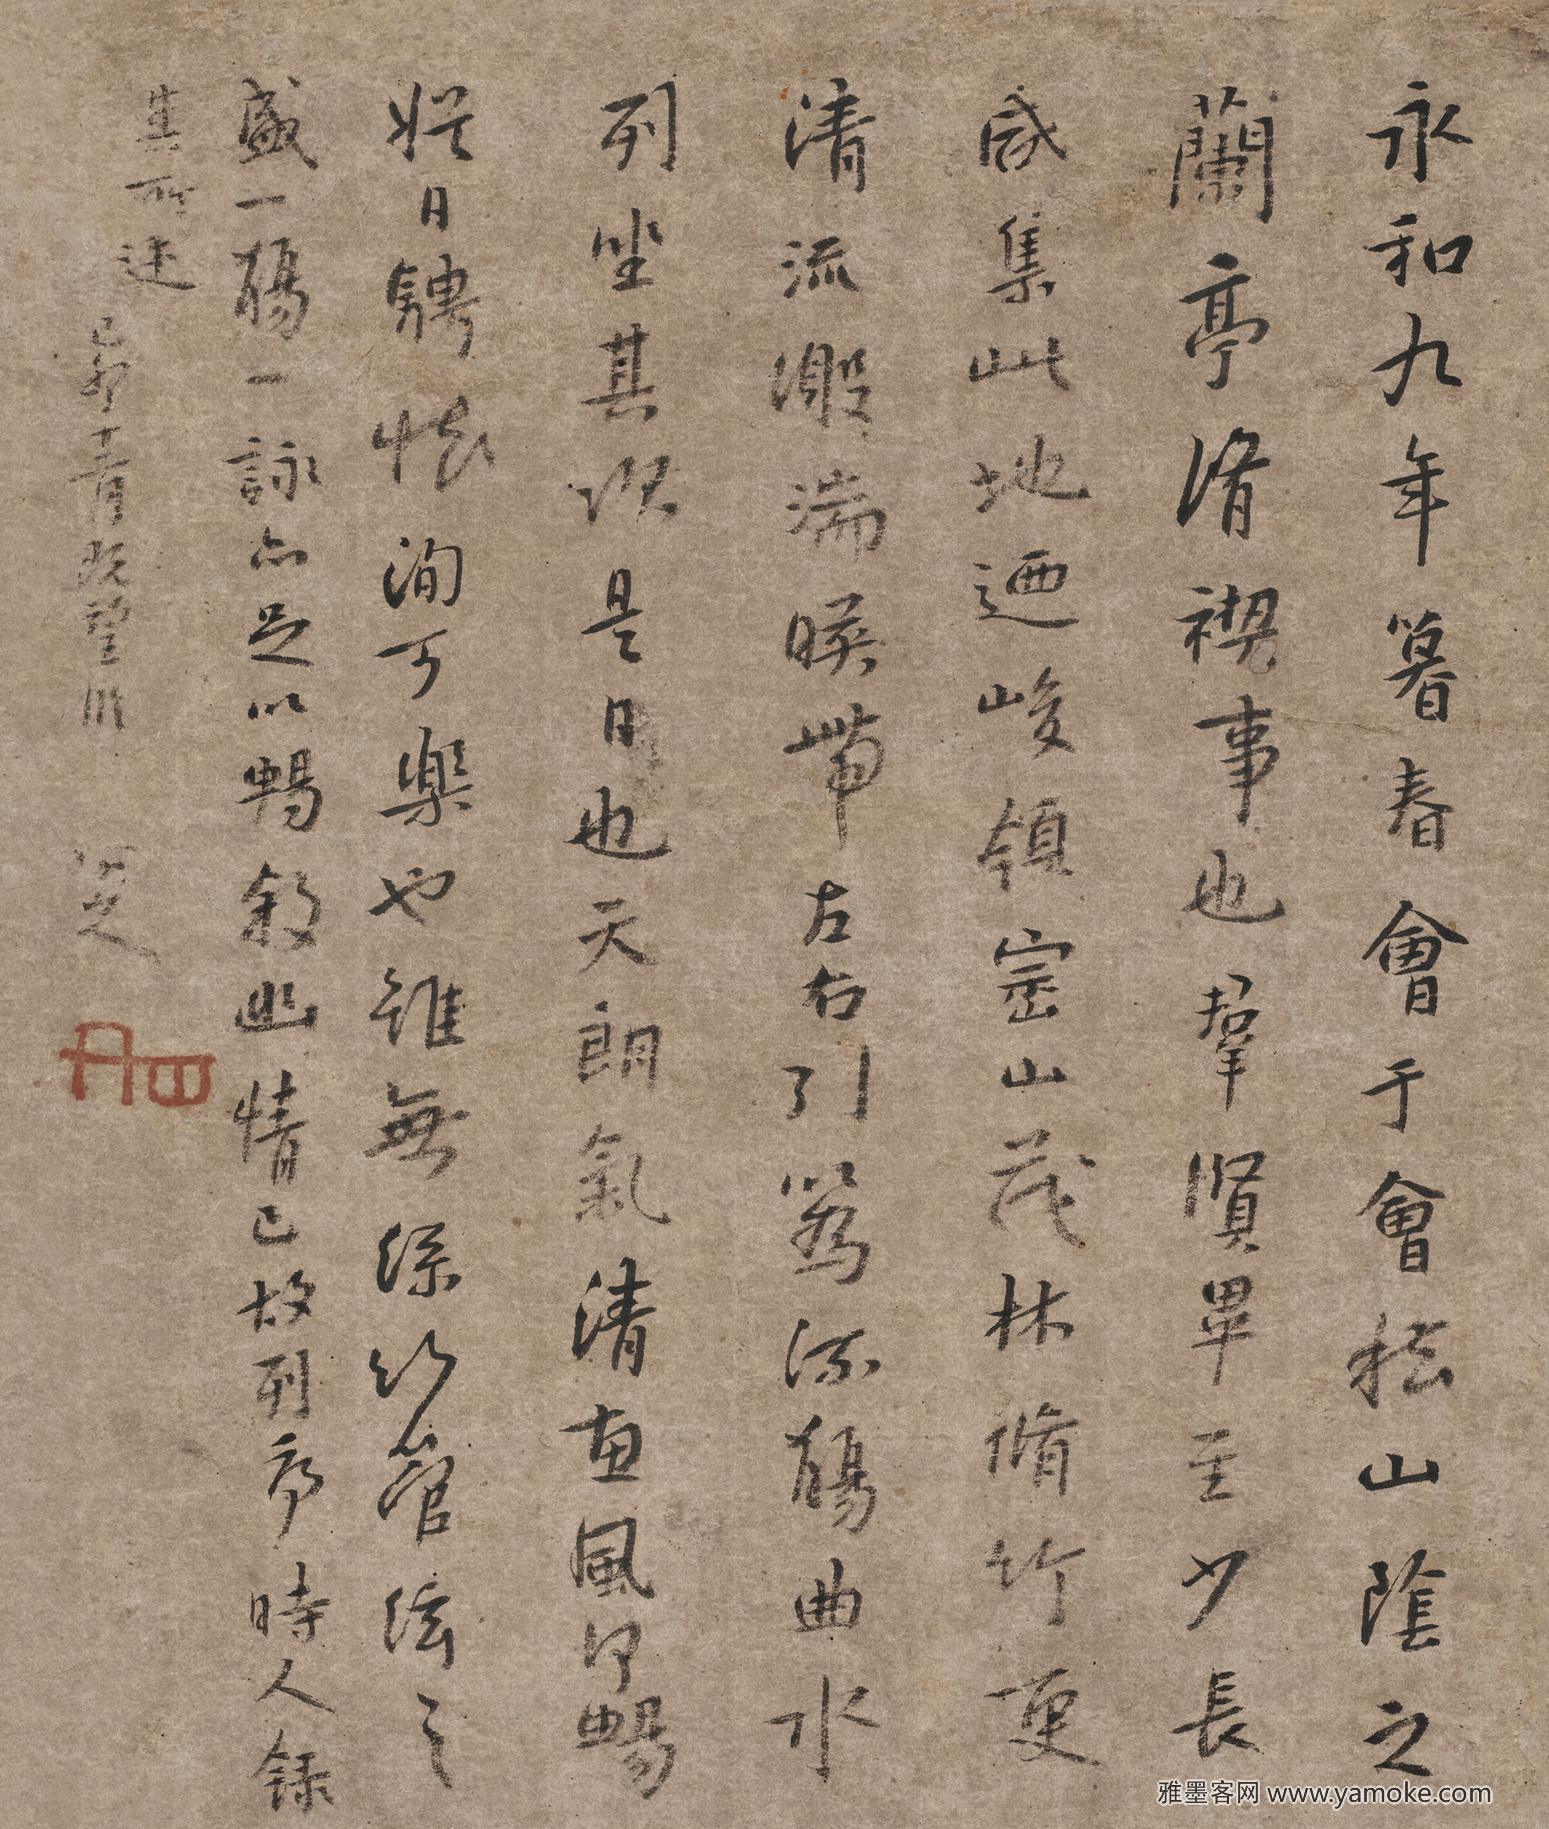 永和九年暮春會于會稽山陰之
蘭亭脩禊事也羣賢畢至少長
咸集此地迺峻領崇山茂林脩竹更
清流激湍暎帶左右引為流觴曲水
列坐其次是日也天朗氣清惠風和暢
娛日騁懷洵可樂也雖無絲竹管絃之
盛一觴一詠亦足以暢敘幽情已故列序時人錄
其所述
己卯 既望臨
八大
雅墨客网 www.yamoke.com